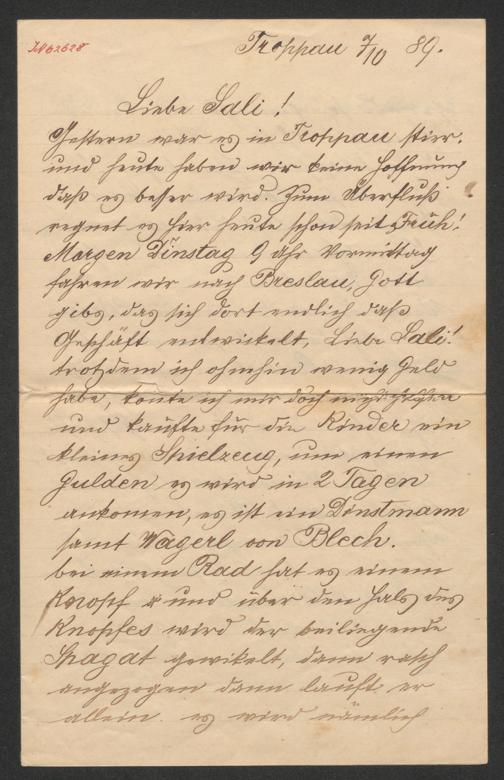 IN 62628
Troppau 7/10 89.
Liebe Sali!
Gestern war es in Troppau stier.
und heute haben wir keine Hoffnung
daß es besser wird. Zum Überfluß
regnet es hier heute schon seit Früh!
Morgen Dinstag 9 Uhr Vormittag
fahren wir nach Breslau, Gott
gibs, das sich dort endlich daß
Geschäft entwickelt, Liebe Sali!
trotzdem ich ohnhin wenig Geld
habe, konte ich mir doch nicht helfen
und kaufte für die Kinder ein
kleines Spielzeug, um einen
Gulden es wird in 2 Tagen
ankomen, es ist ein Dinstmann
samt Wagerl von Blech.
bei einem Rad hat es einem
Knopf und über den Hals des
Knopfes wird der beiliegende
Spagat gewikelt, dann rasch
angezogen dann lauft er
allein. es wird nämlich